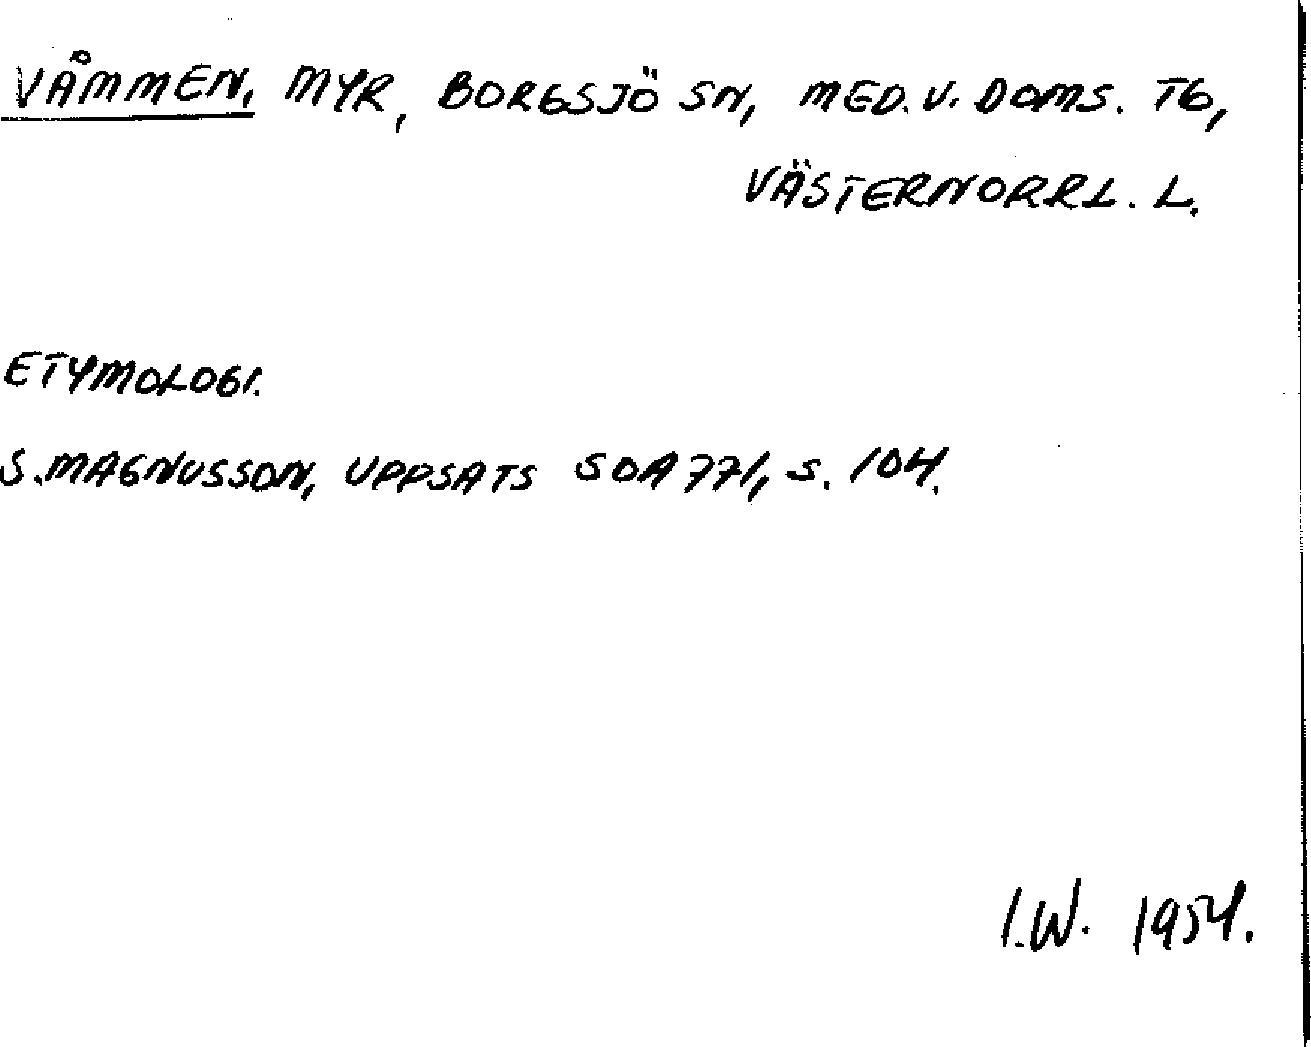 VÅMMEN, MYR, BORGSJÖ SN, MED. V. DOMS. TG,
VÄSTERNORRL. L.
ETYMOLOGI.
S. MAGNUSSON, UPPSATS SOA 771, S. 104.
I.W. 1954.